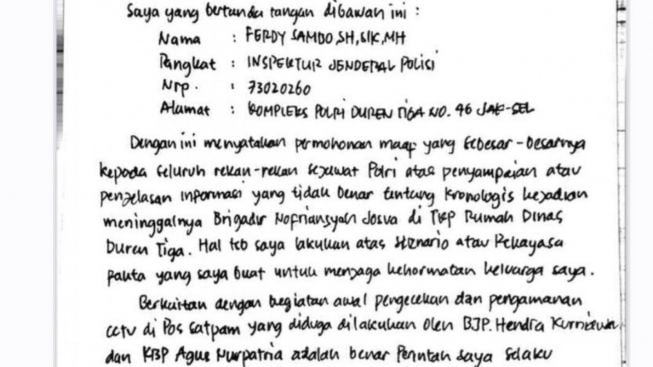 Saya yang bertanda tangan dibawah ini :
Nama : FERDY SAMBO, SH, SIK, MH
Pangkat : INSPEKTUR JENDERAL POLISI
Nrp. : 73020260
Alamat : KOMPLEKS POLRI DUREN TIGA NO. 46 JAK-SEL
Dengan ini menyatakan permohonan maap yang sebesar-besarnya
kepada seluruh rekan-rekan sejawat Polri atas penyampaian atau
penjelasan informasi yang tidak benar tentang kronologis kejadian
meninggalnya Brigadir Nofriansyah Josua di TKP Rumah Dinas
Duren Tiga. Hal tsb saya lakukan atas skenario atau Rekayasa
Fakta yang saya buat untuk menjaga kehormatan keluarga saya.
Berkaitan dengan kegiatan awal pengecekan dan pengamanan
cctv di Pos Satpam yang diduga dilakukan oleh BJP. Hendra Kurniawan
dan KBP Agus Nurpatria adalah benar Perintah saya selaku